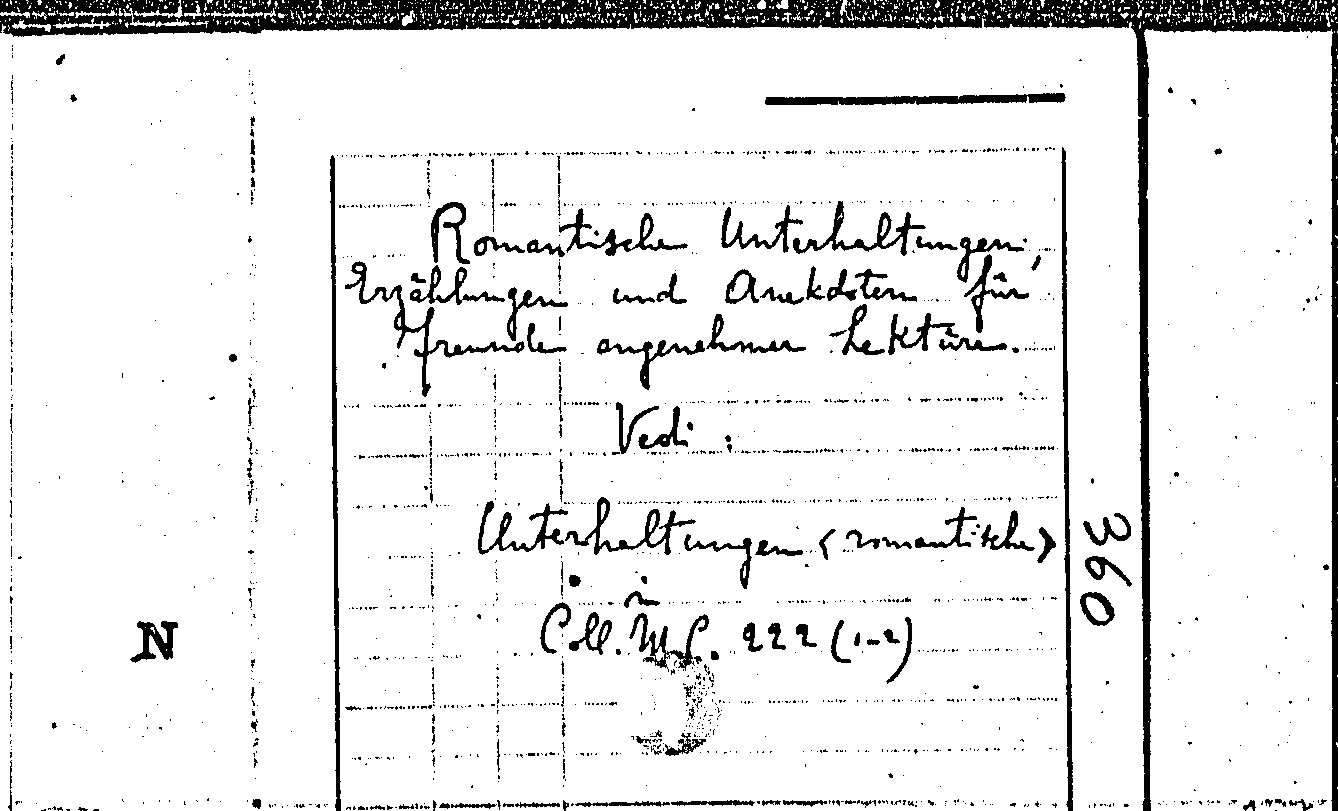 Romantische Unterhaltungen,
Erzählungen und Anekdoten für
freunde angenehmer Lektüre.
Vedi :
Unterhaltungen <romantische>
Coll. 222 (1-2)
360
N